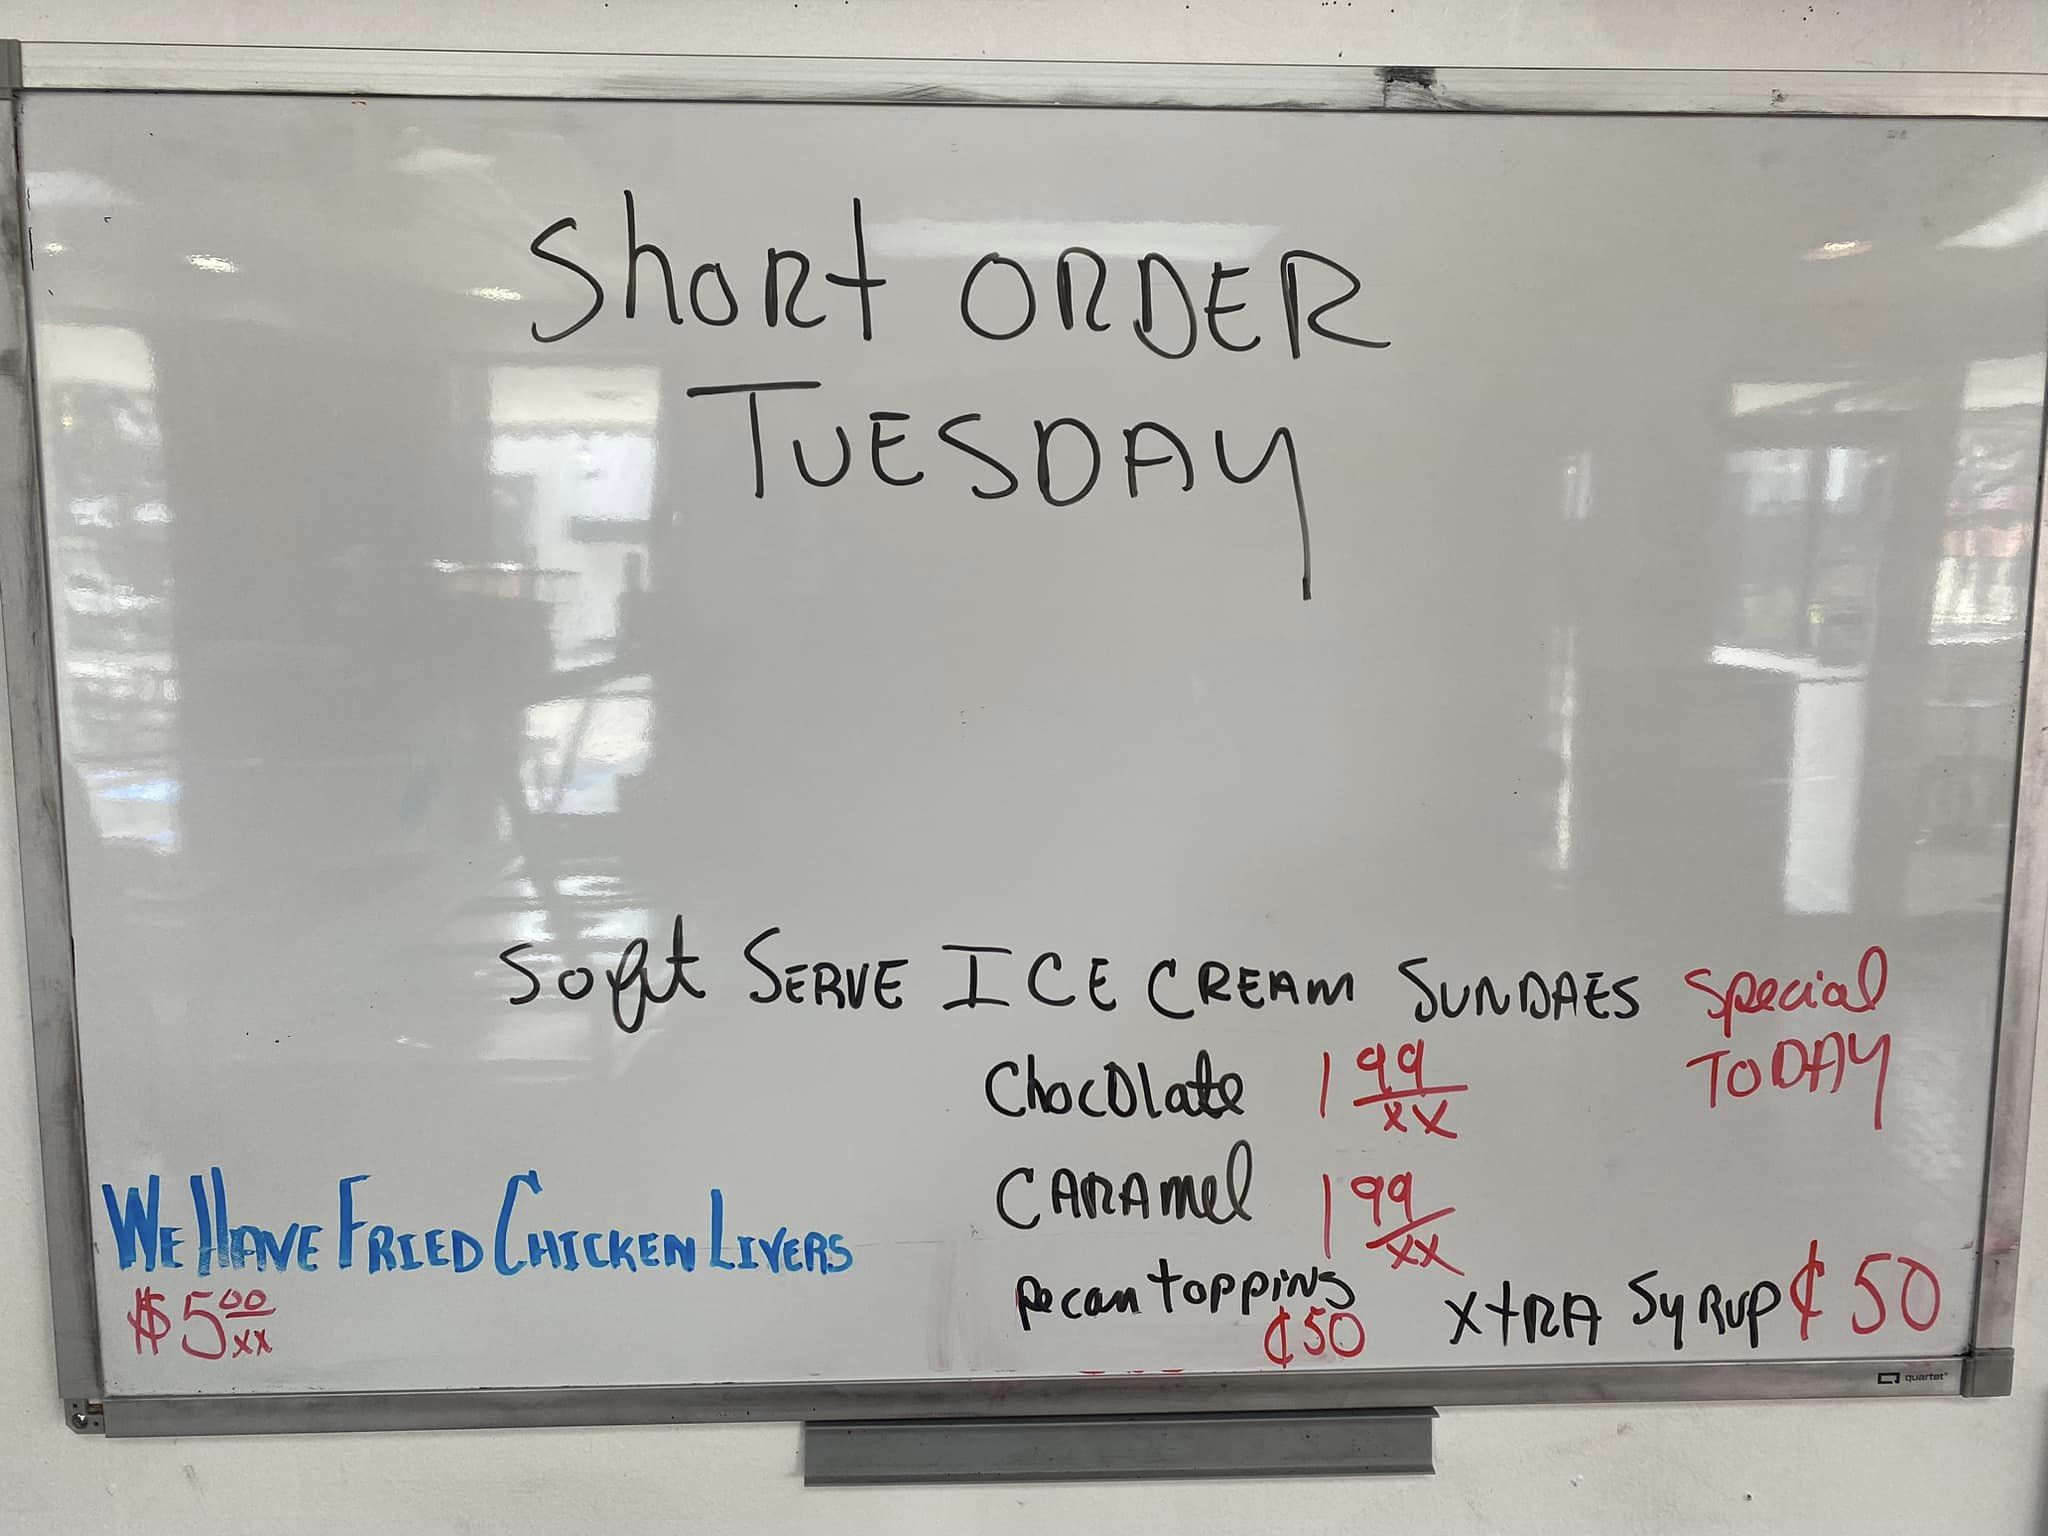 Short ORDER
TUESDAY
Soft SERVE ICE CREAM SUNDAES Special
TODAY
Chocolate 1 99/xx
CARAMel 1 99/xx
WE HAVE FRIED CHICKEN LIVERS
$5 00/xx
Pecan topping
¢50
XtRA SyRUP ¢50
quartet